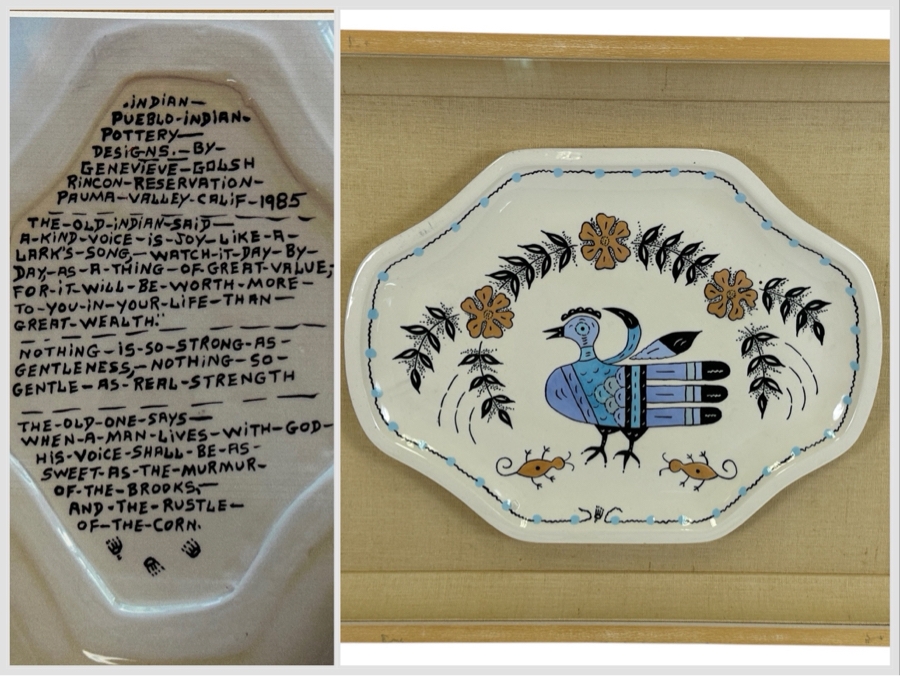 .INDIAN—
PUEBLO-INDIAN.
POTTERY—
DESIGNS.-BY-
GENEVIEVE-GOLSH
RINCON-RESERVATION-
PAUMA-VALLEY-CALIF-1985
THE-OLD-INDIAN-SAID—
A-KIND-VOICE-IS-JOY-LIKE-A-
LARK'S-SONG,-WATCH-IT-DAY-BY-
DAY,-AS-A-THING-OF-GREAT-VALUE;
FOR-IT-WILL-BE-WORTH-MORE-
TO-YOU-IN-YOUR-LIFE-THAN-
GREAT-WEALTH."
NOTHING-IS-SO-STRONG-AS-
GENTLENESS,-NOTHING-SO-
GENTLE-AS-REAL-STRENGTH
THE-OLD-ONE-SAYS—
WHEN-A-MAN-LIVES-WITH-GOD-
HIS-VOICE-SHALL-BE-AS-
SWEET-AS-THE-MURMUR-
OF-THE-BROOKS,-
AND-THE-RUSTLE-
OF-THE-CORN.